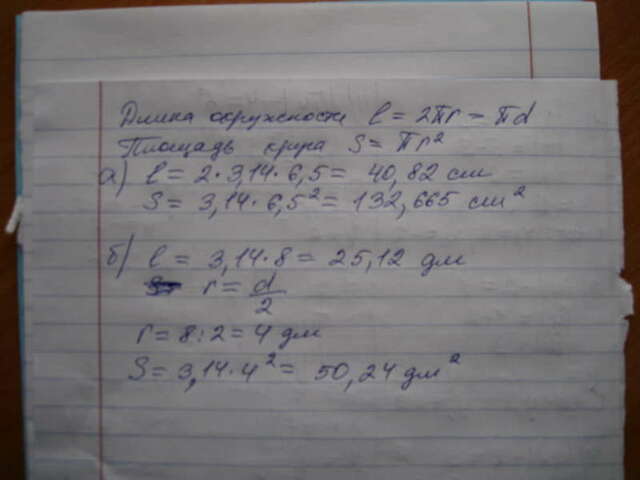 Длина окружности l = 2πr = πd
Площадь круга S = πr²
а) l = 2·3,14·6,5 = 40,82 см
S = 3,14·6,5² = 132,665 см²
б) l = 3,14·8 = 25,12 дм
r = d/2
r = 8:2 = 4 дм
S = 3,14·4² = 50,24 дм²